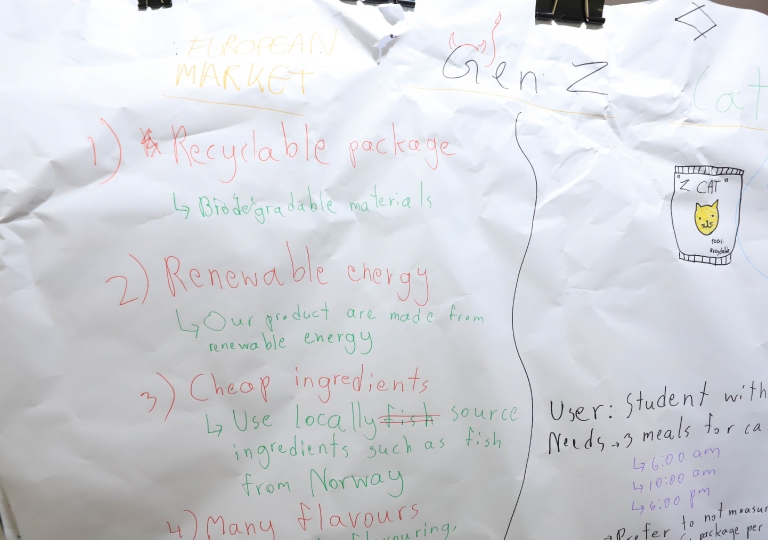 EUROPEAN
MARKET
Gen Z
Cat
1) Recyclable package
↳ Biodegradable materials
2) Renewable energy
↳ Our product are made from
renewable energy
3) Cheap ingredients
↳ Use locally fish source
ingredients such as fish
from Norway
4) Many flavours
"Z CAT"
100%
Recyclable
User: Student with
Needs → 3 meals for ca
↳ 6:00 am
↳ 10:00 am
↳ 6:00 pm
→ Prefer to not measur
package per